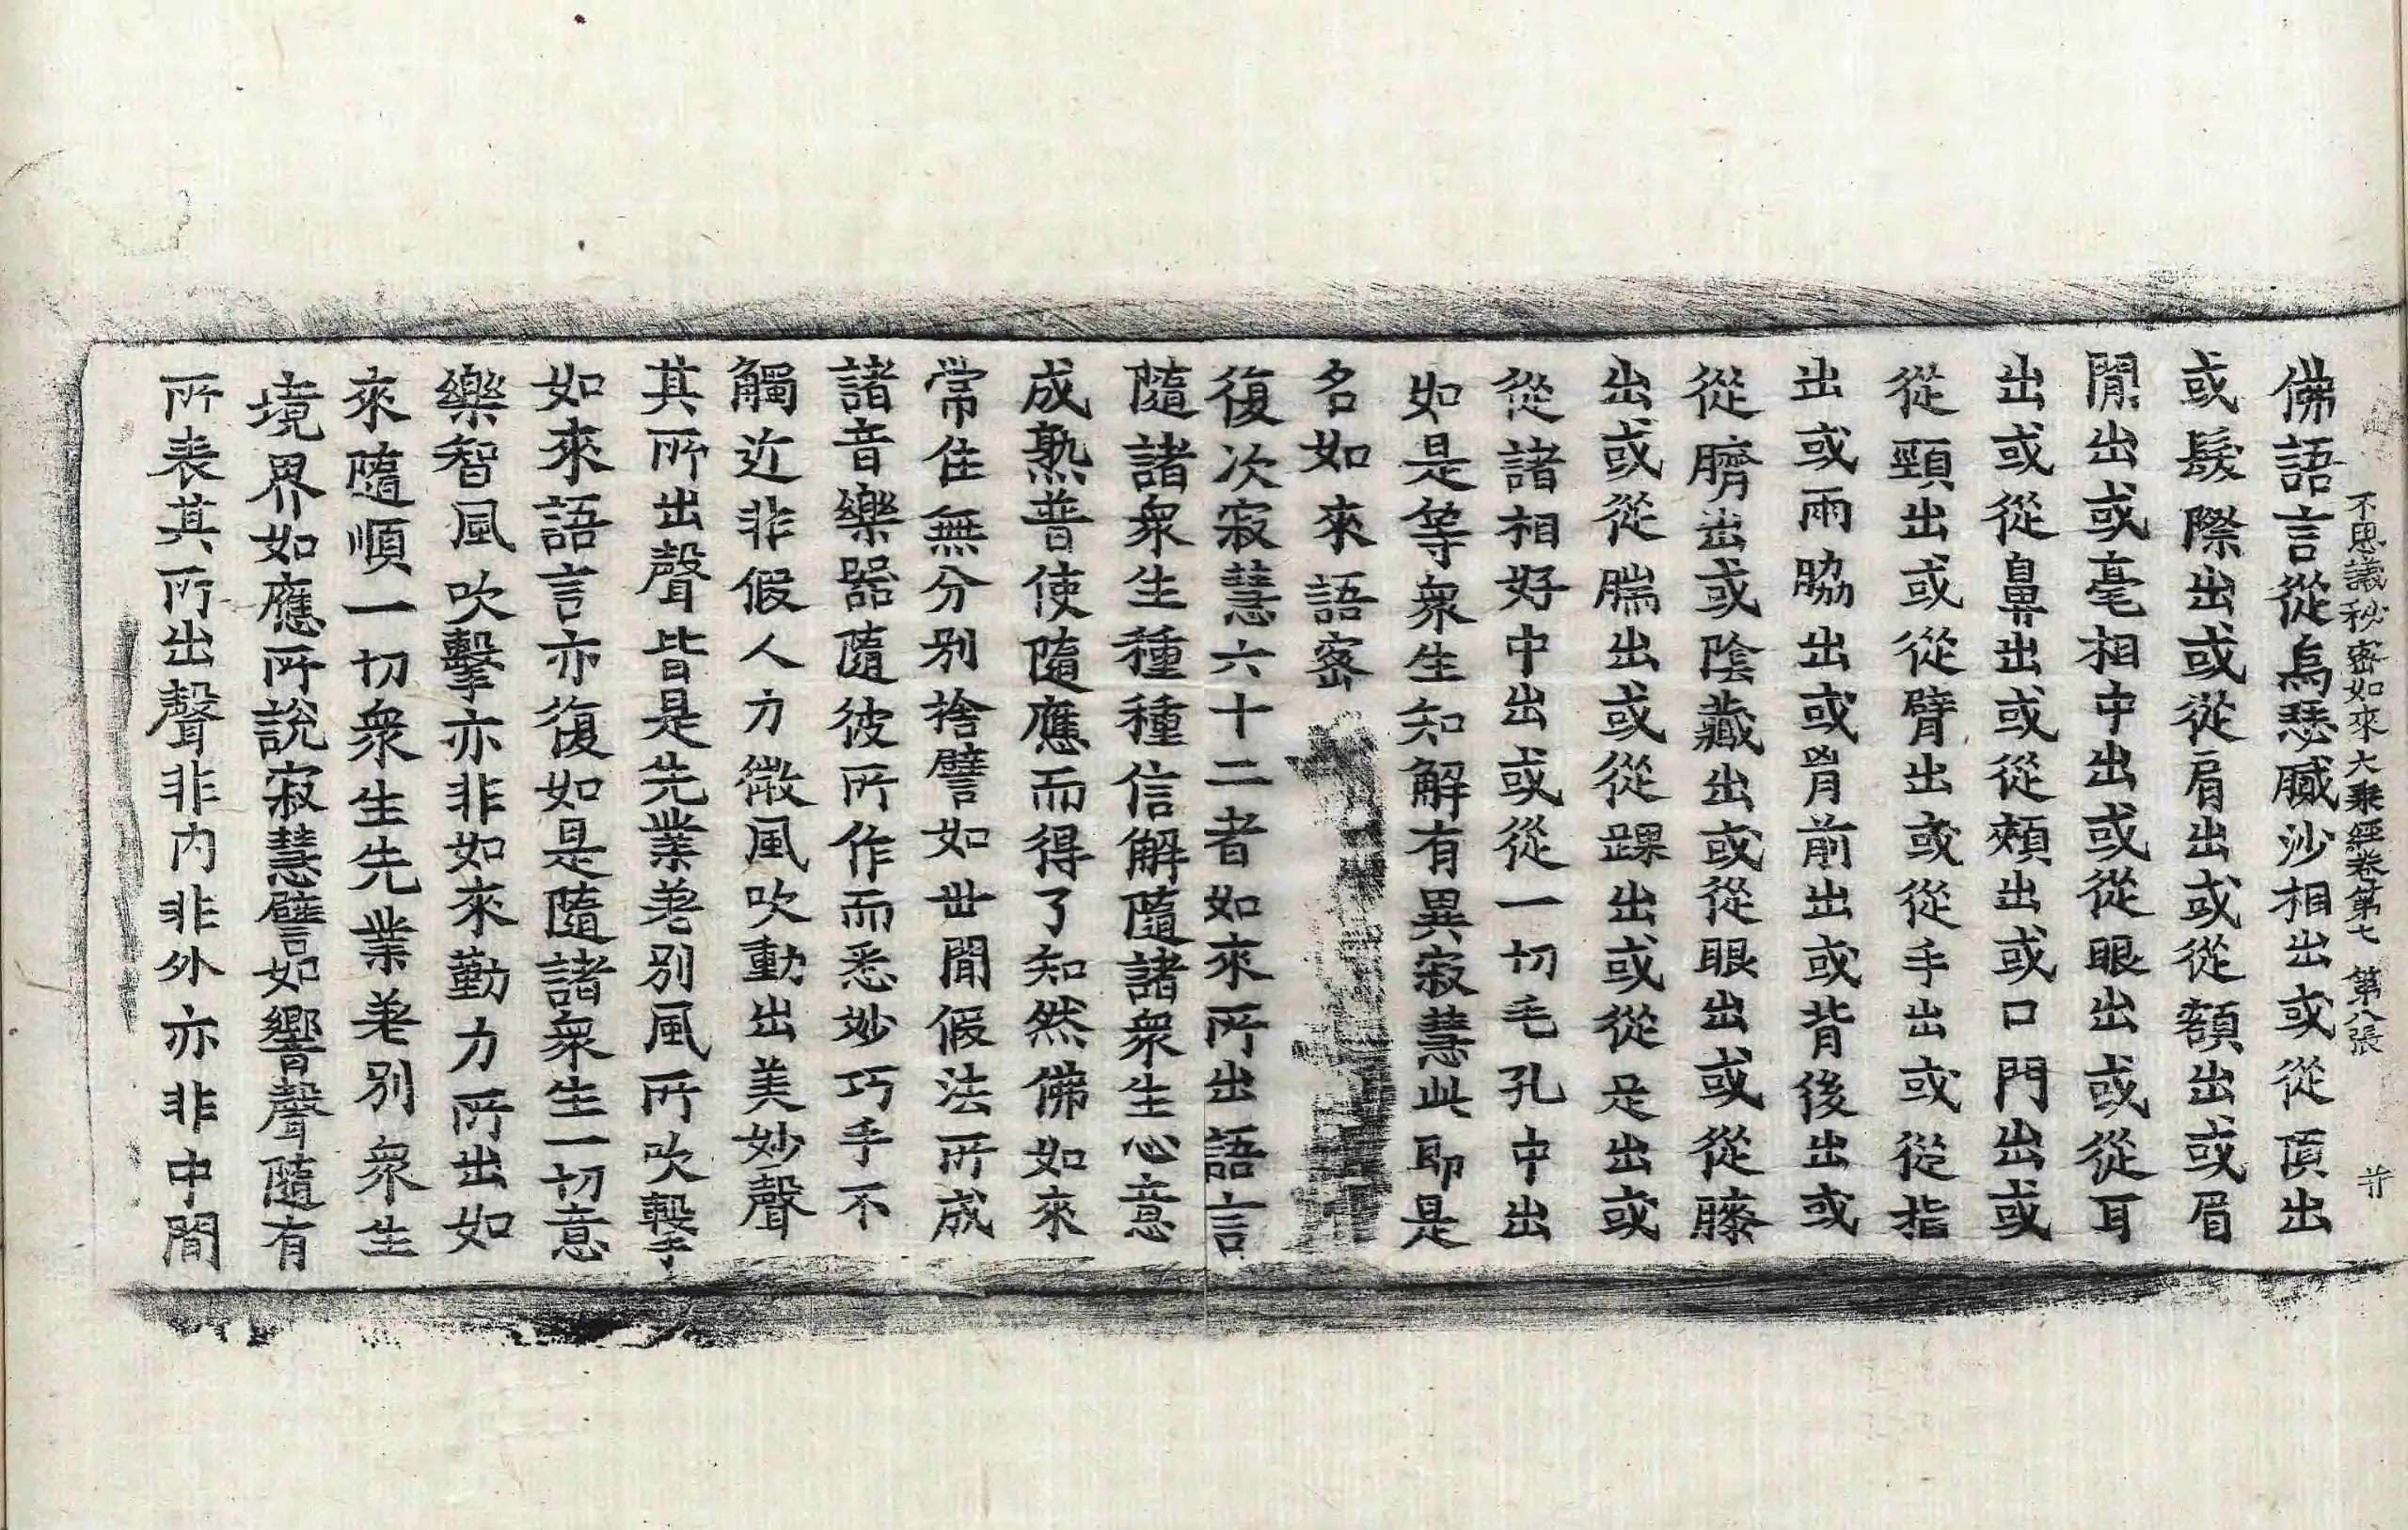 不思議秘密如來大乘經卷第七 第八張 並
佛語言從烏瑟膩沙相出或從頂出
或髮際出或從肩出或從額出或眉
間出或毫相中出或從眼出或從耳
出或從鼻出或從頰出或口門出或
從頸出或從臂出或從手出或從指
出或兩脇出或胷前出或背後出或
從臍出或陰藏出或從眼出或從膝
出或從腨出或從踝出或從足出或
從諸相好中出或從一切毛孔中出
如是等衆生知解有異寂慧此即是
名如來語密
復次寂慧六十二者如來所出語言
隨諸衆生種種信解隨諸衆生心意
成熟普使隨應而得了知然佛如來
常住無分別捨譬如世間假法所成
諸音樂器隨彼所作而悉妙巧手不
觸近非假人力微風吹動出美妙聲
其所出聲皆是先業差別風所吹擊
如來語言亦復如是隨諸衆生一切意
樂智風吹擊亦非如來勤力所出如
來隨順一切衆生先業差別衆生
境界如應所說寂慧譬如響聲隨有
所表其所出聲非內非外亦非中間